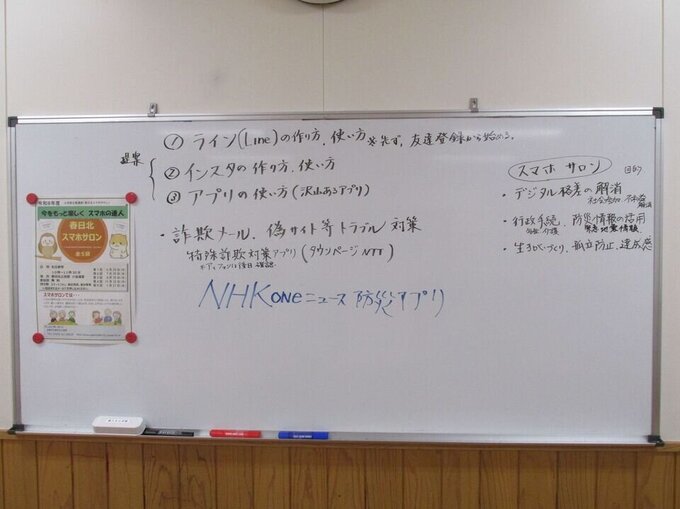 ① ライン(Line)の作り方、使い方 ※先ず、友達登録から始める。
提案
② インスタの作り方、使い方
③ アプリの使い方(沢山あるアプリ)
・詐欺メール、偽サイト等トラブル対策
特殊詐欺対策アプリ(タウンページNTT)
は後日確認
NHK ONEニュース防災アプリ
スマホサロン
目的
・デジタル格差の解消
社会参加
・行政手続、防災情報の活用
緊急地震情報
・生きがいづくり、孤立防止、達成感
令和8年度
今をもっと楽しく スマホの達人
春日北
スマホサロン
全5回
スマホサロンでは…